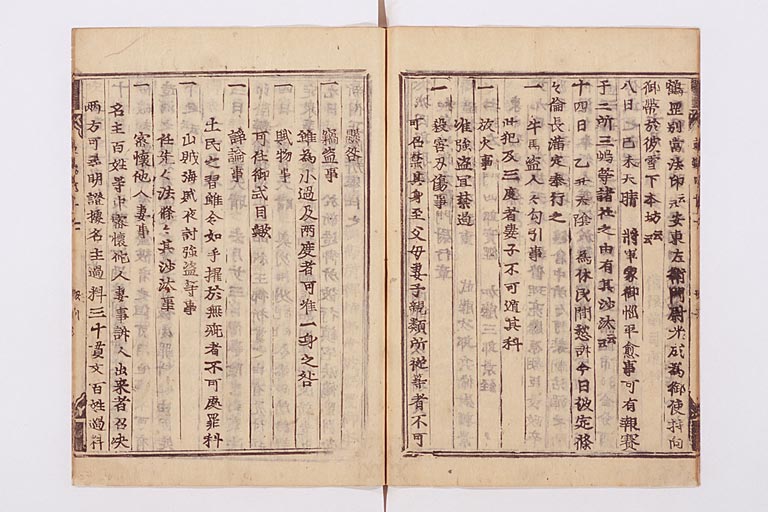 鶴岡別當法印云安東左衛門尉光成為御使持向
御幣於彼雪下本坊云云
八日 己未 天晴 將軍家御惱平愈事可有報賽
于三所三嶋等諸社之由有其沙汰云云
十四日 乙丑 天陰 為休民間愁訴今日被定條
々倫長清定奉行之
一 牛馬盗人人勾引事
此犯及三度者妻子不可遁其科
一 放火事
准強盗宜禁遏
一 殺害刃傷事
可召禁其身至父母妻子親類所從等者不可
懸咎
一 竊盗事
雖為小過及兩度者可准一身之咎
一 賦物事
可任御式目歟
一 諍論事
土民之習雖令如手擢於無疵者不可處罪科
一 山賊海賊夜討強盗等事
任先々法條々其沙汰事
一 密懷他人妻事
名主百姓等中密懷他人妻事訴人出来者召决
兩方可尋明證據名主過料三十貫文百姓過料